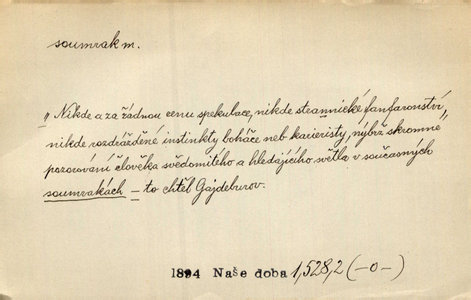 soumrak m.
„Nikde a za řádnou cenu spekulace, nikde strannické fanfaronství,
nikde rozdrážděné instinkty boháče neb karieristy, nýbrž skromné"
pozorování člověka svědomitého a hledajícího světla v současných
soumrakách – to chtěl Gajdeburov.
1894 Naše doba 1,528,2 (-o-)